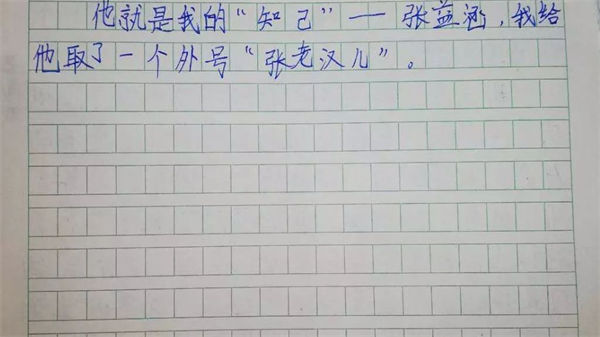 他就是我的“知己”——张益涵，我给
他取了一个外号“张老汉儿”。